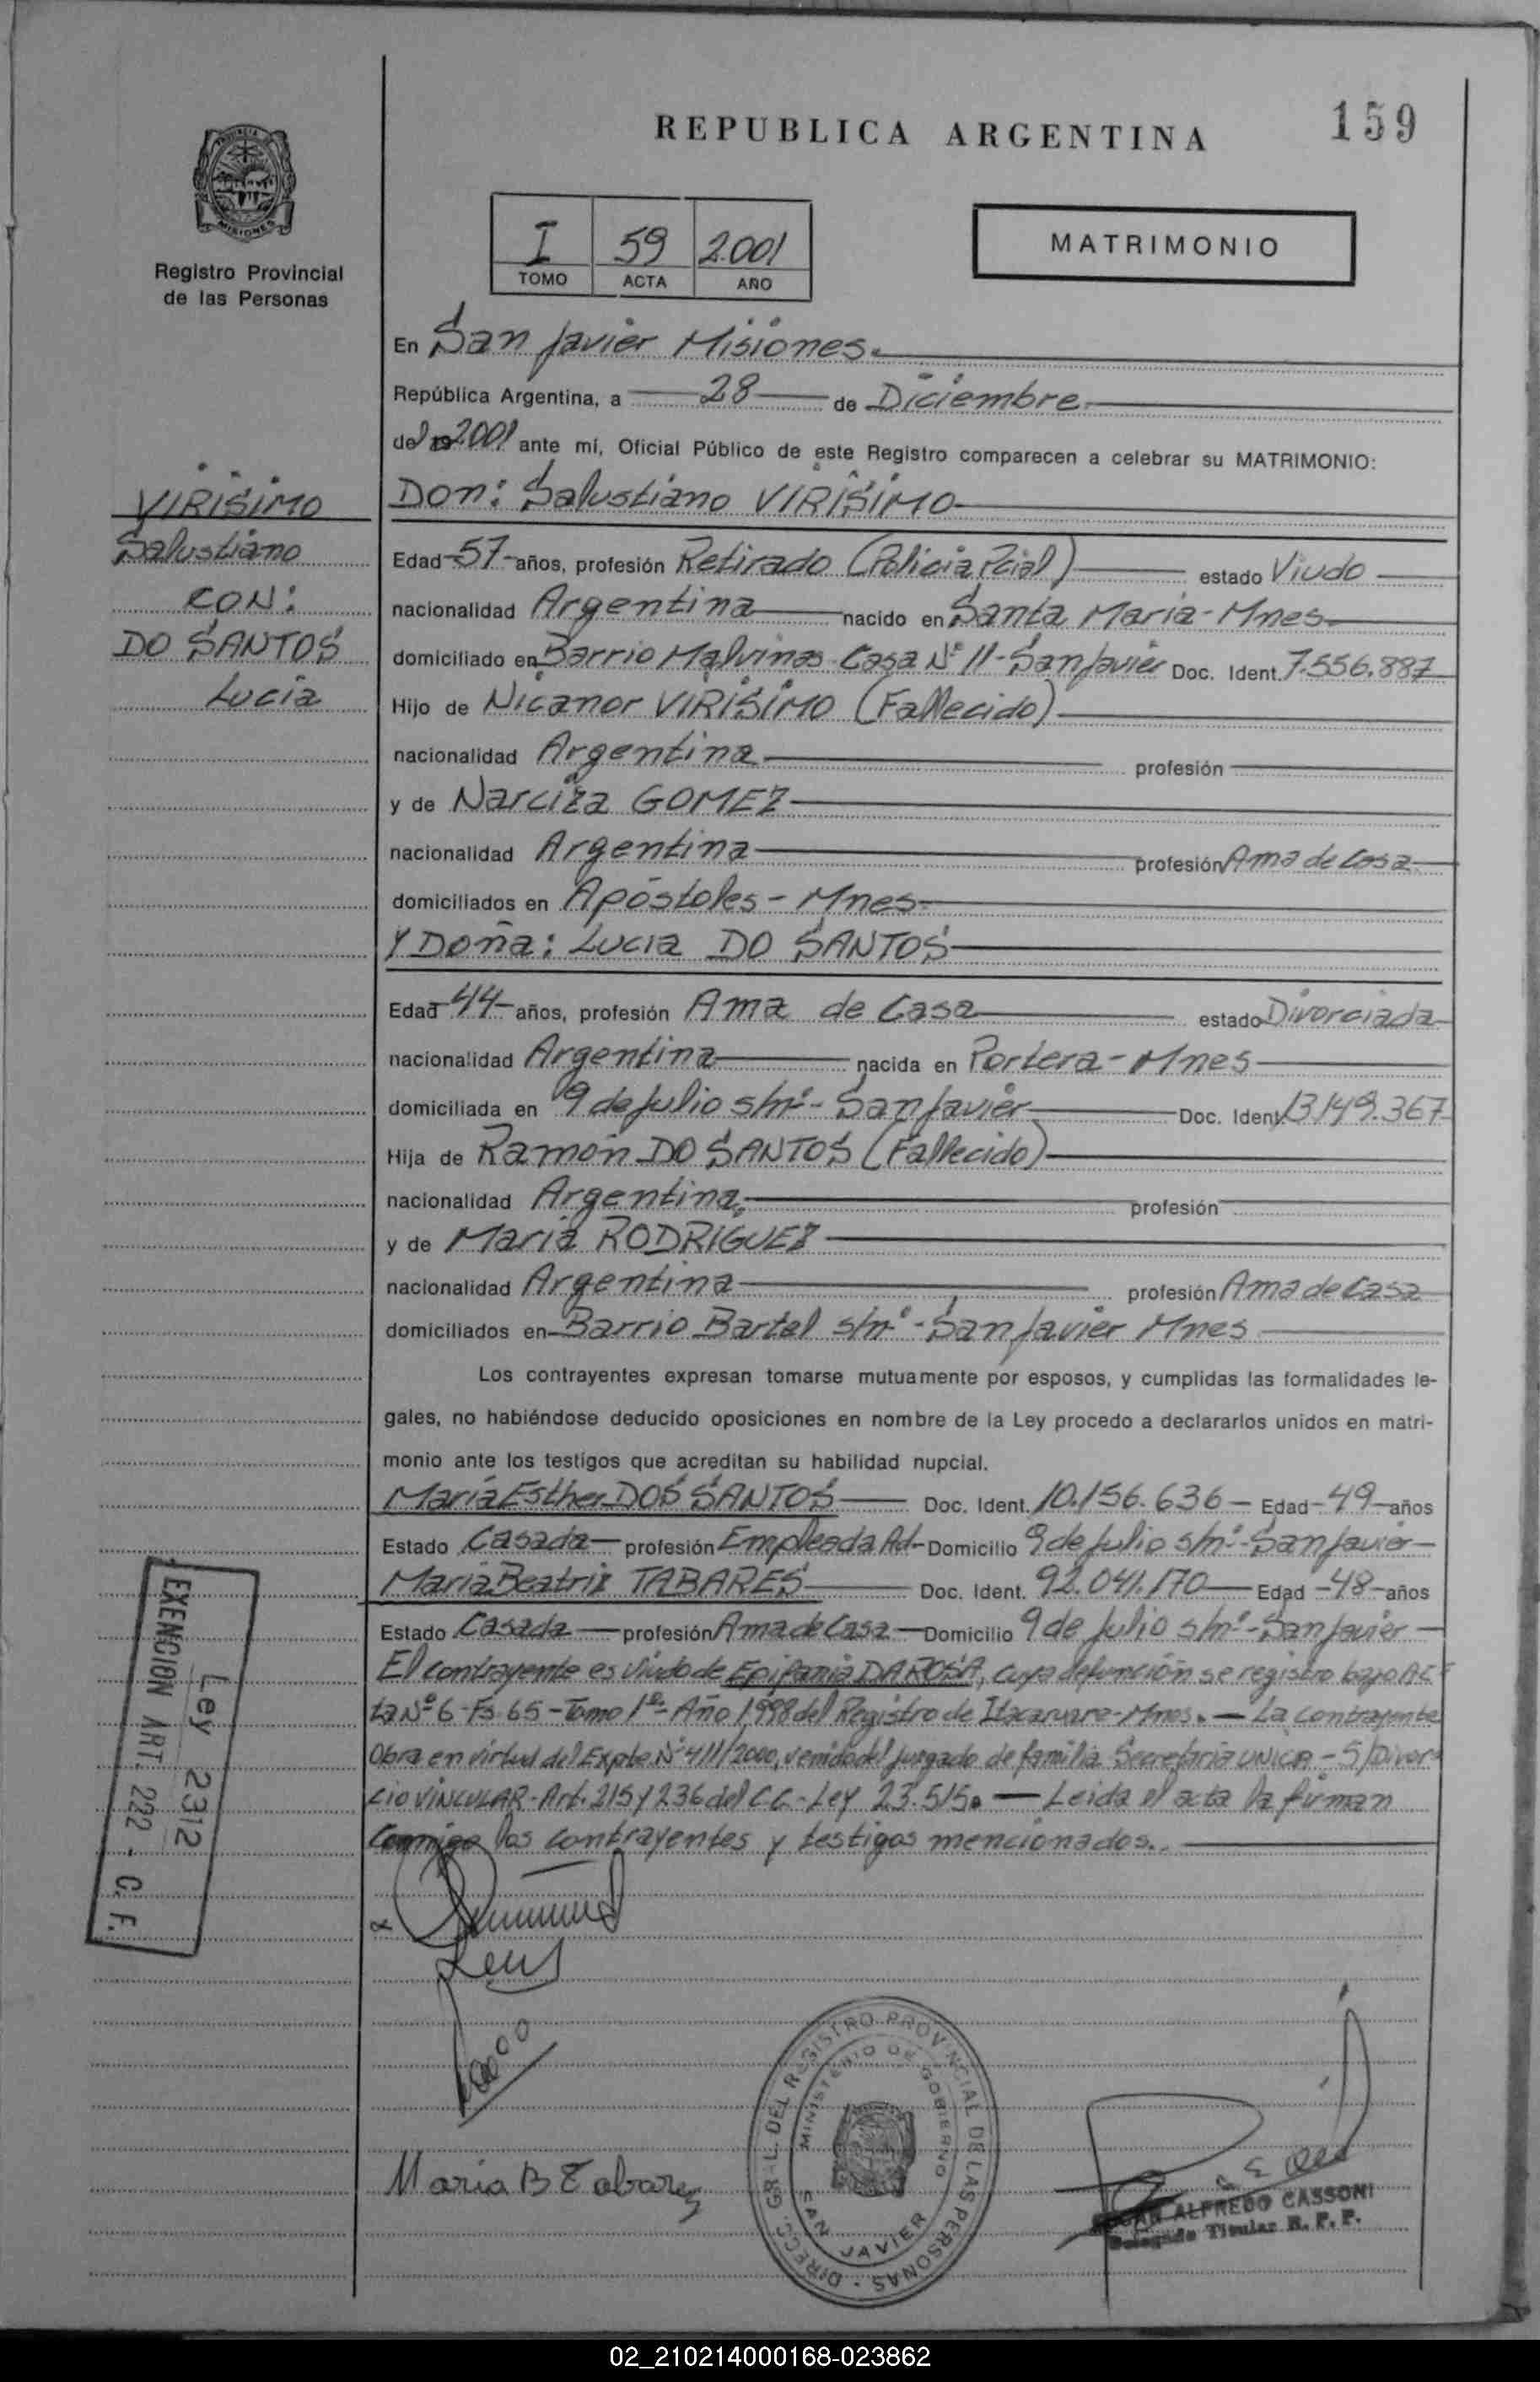 REPUBLICA ARGENTINA
159
Registro Provincial
de las Personas
I 59 2.001
TOMO ACTA AÑO
MATRIMONIO
En San Javier Misiones.
República Argentina, a 28 de Diciembre
del 2.001 ante mí, Oficial Público de este Registro comparecen a celebrar su MATRIMONIO:
VIRISIMO
Salustiano
CON:
DO SANTOS
Lucia
Don: Salustiano VIRISIMO
Edad 57 años, profesión Retirado (Policia Pcial) estado Viudo
nacionalidad Argentina nacido en Santa Maria - Mnes
domiciliado en Barrio Malvinas Casa Nº 11 - San Javier Doc. Ident. 7.556.887
Hijo de Nicanor VIRISIMO (Fallecido)
nacionalidad Argentina profesión
y de Narciza GOMEZ
nacionalidad Argentina profesión Ama de Casa
domiciliados en Apóstoles - Mnes
Y Doña: Lucia DO SANTOS
Edad 44 años, profesión Ama de Casa estado Divorciada
nacionalidad Argentina nacida en Portera - Mnes
domiciliada en 9 de Julio s/nº - San Javier Doc. Ident. 13.149.367
Hija de Ramón DO SANTOS (Fallecido)
nacionalidad Argentina profesión
y de Maria RODRIGUEZ
nacionalidad Argentina profesión Ama de Casa
domiciliados en Barrio Bartel s/nº - San Javier Mnes
Los contrayentes expresan tomarse mutuamente por esposos, y cumplidas las formalidades le-
gales, no habiéndose deducido oposiciones en nombre de la Ley procedo a declararlos unidos en matri-
monio ante los testigos que acreditan su habilidad nupcial.
María Esther DOS SANTOS Doc. Ident. 10.156.636 Edad 49 años
Estado Casada profesión Empleada Ad- Domicilio 9 de Julio s/nº - San Javier
María Beatriz TABARES Doc. Ident. 92.041.170 Edad 48 años
Estado Casada profesión Ama de Casa Domicilio 9 de Julio s/nº - San Javier
El contrayente es viudo de Epifania DA ROSA, cuya defunción se registro bajo Ac-
ta Nº 6 - Fs 65 - Tomo 1º - Año 1998 del Registro de Itacaruare - Mnes. - La contrayente
Obra en virtud del Expte. Nº 411/2000, venido del Juzgado de familia Secretaria UNICA - S/Divor-
cio VINCULAR - Art. 215 y 236 del C.C. - Ley 23.515. - Leida el acta la firman
Conmigo los contrayentes y testigos mencionados.
EXENCION ART. 222 - C. F.
Ley 2312
Maria B Tabares
DIRECC. GRAL. DEL REGISTRO PROVINCIAL DE LAS PERSONAS
MINISTERIO DE GOBIERNO
SAN JAVIER
JUAN ALFREDO CASSONI
Delegado Titular R. P. P.
02_210214000168-023862